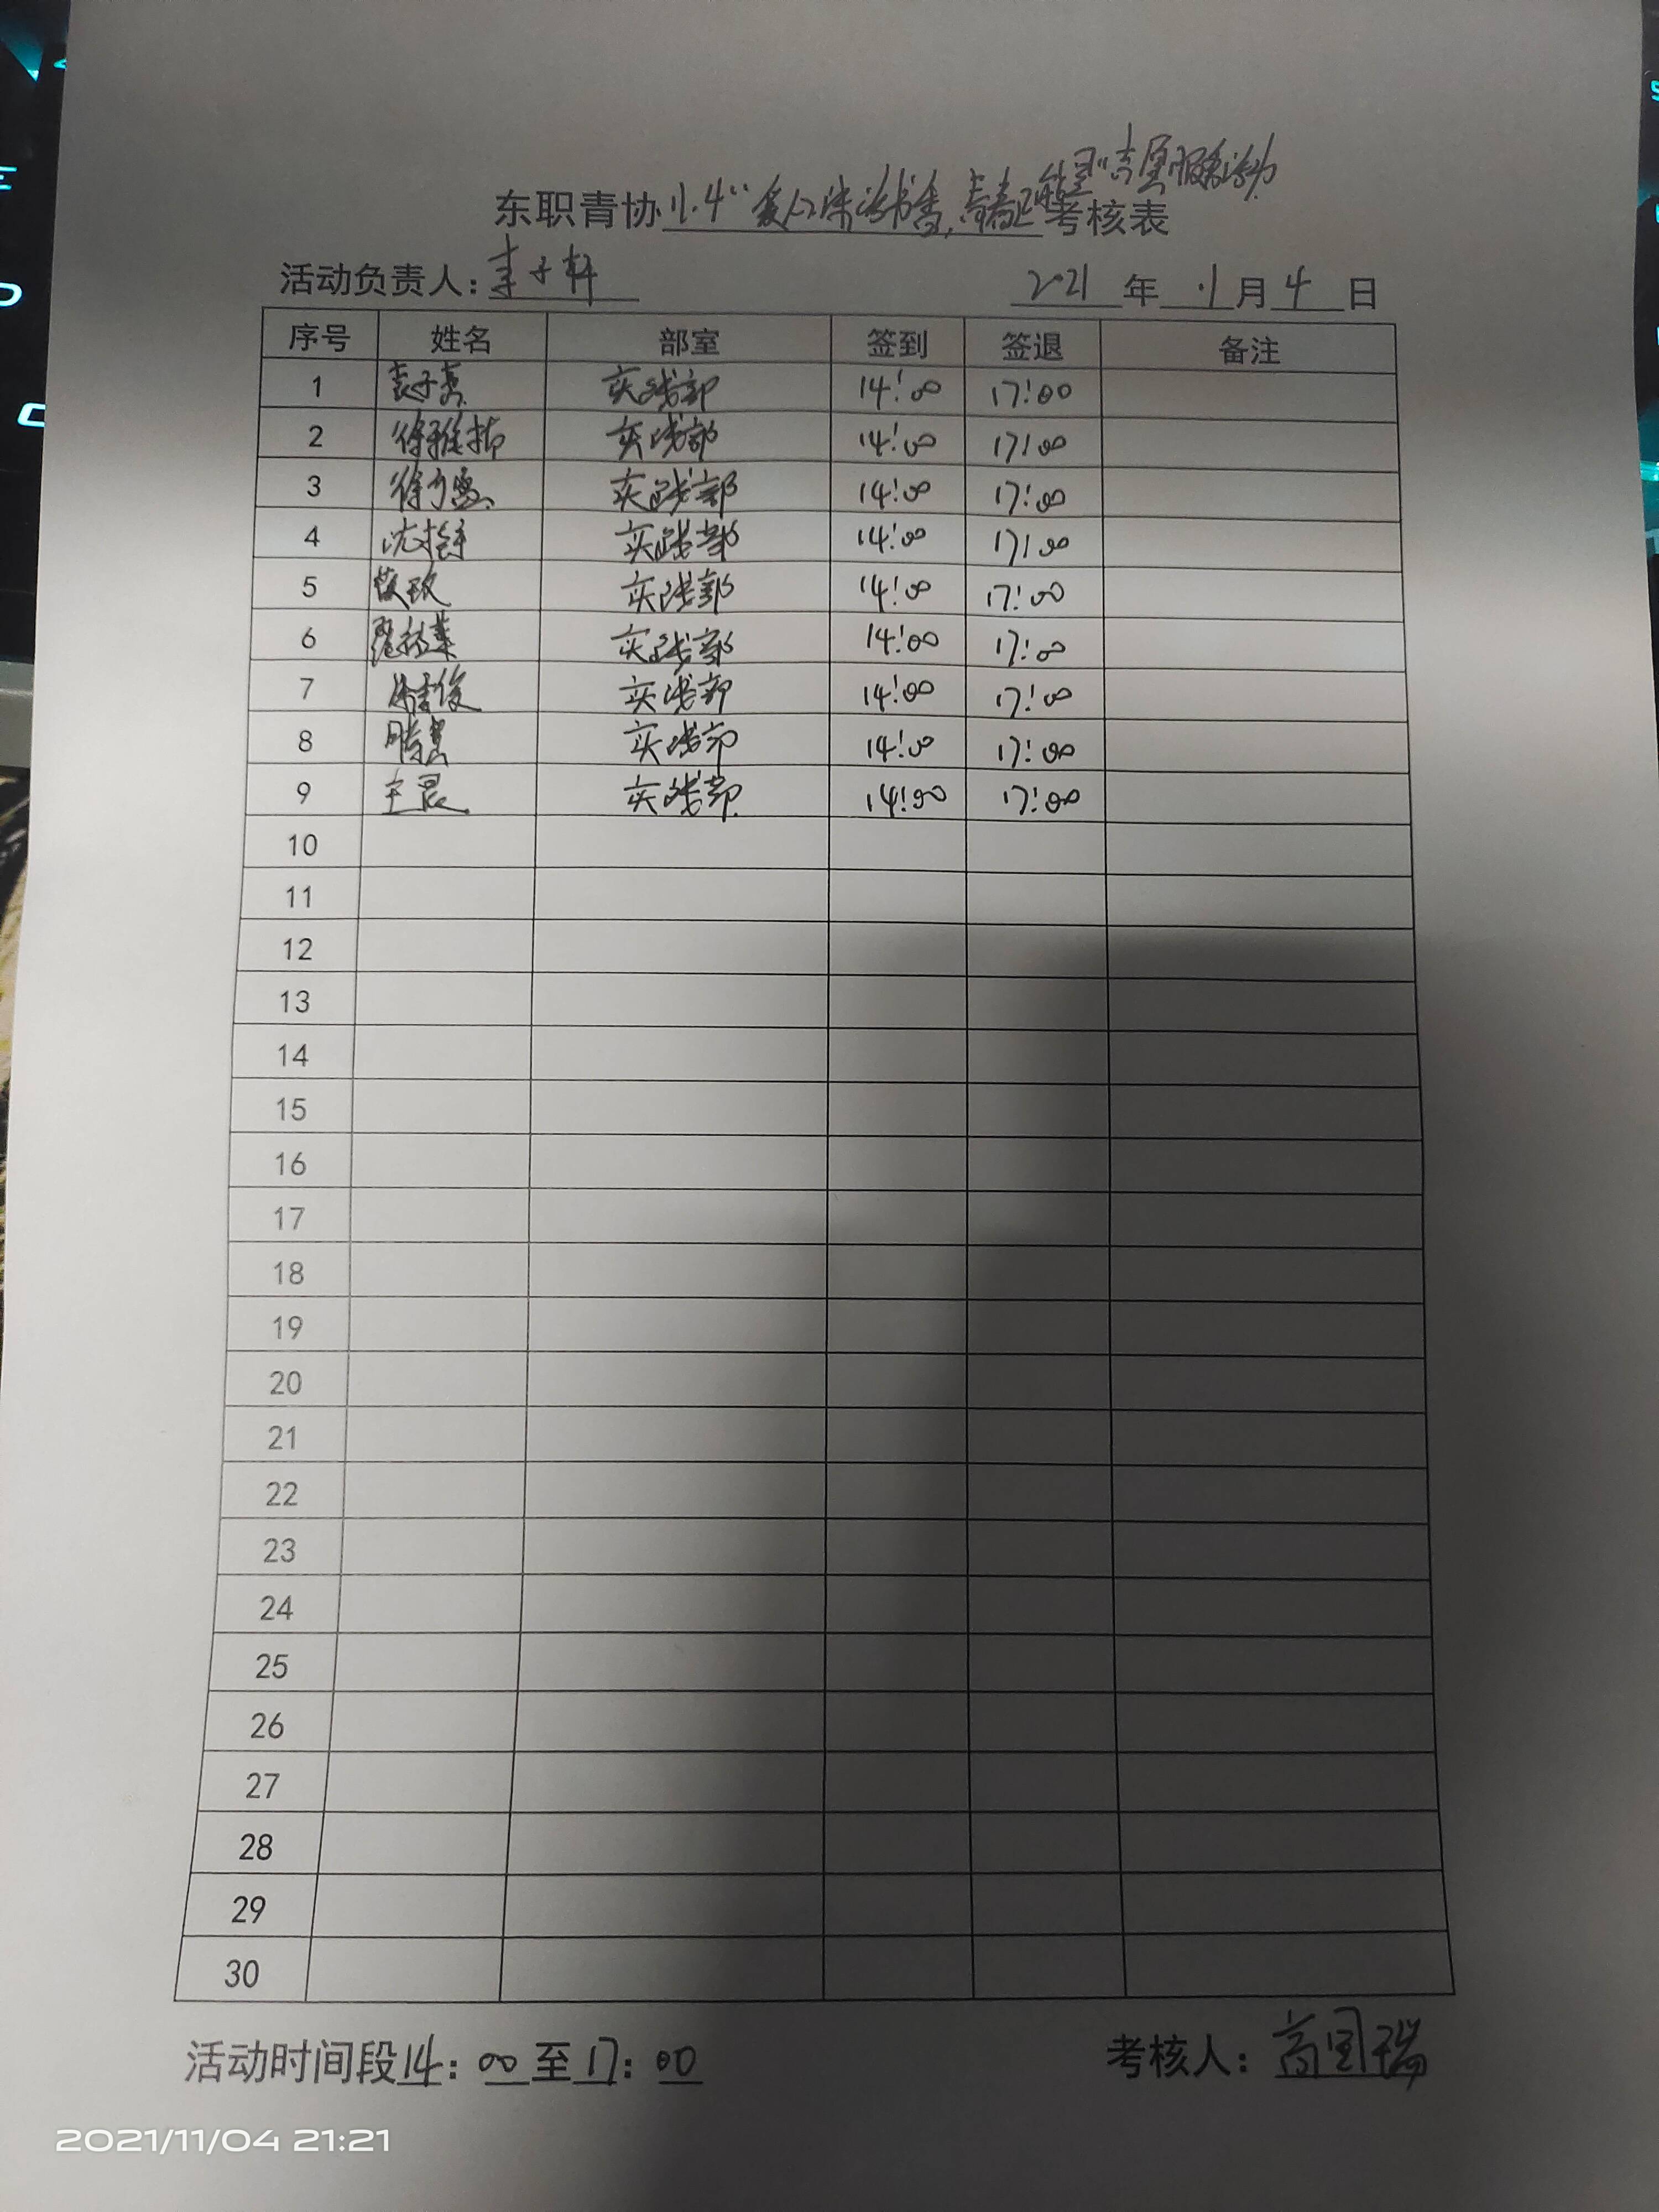 东职青协 11.4“ 书香，青春正能量”志愿服务活动 考核表
活动负责人： 子轩 2021 年 11 月 4 日
序号 姓名 部室 签到 签退 备注
1 实践部 14:00 17:00
2 徐雅茹 实践部 14:00 17:00
3 徐 实践部 14:00 17:00
4 沈 实践部 14:00 17:00
5 实践部 14:00 17:00
6 实践部 14:00 17:00
7 实践部 14:00 17:00
8 实践部 14:00 17:00
9 王晨 实践部 14:00 17:00
10
11
12
13
14
15
16
17
18
19
20
21
22
23
24
25
26
27
28
29
30
活动时间段14：00至17：00 考核人：高国瑞
2021/11/04 21:21